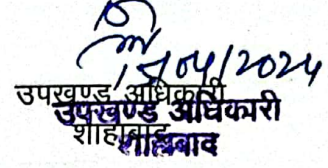 15/04/2024
उपखण्ड अधिकारी
उपखण्ड अधिकारी
शाहाबाद
शाहाबाद